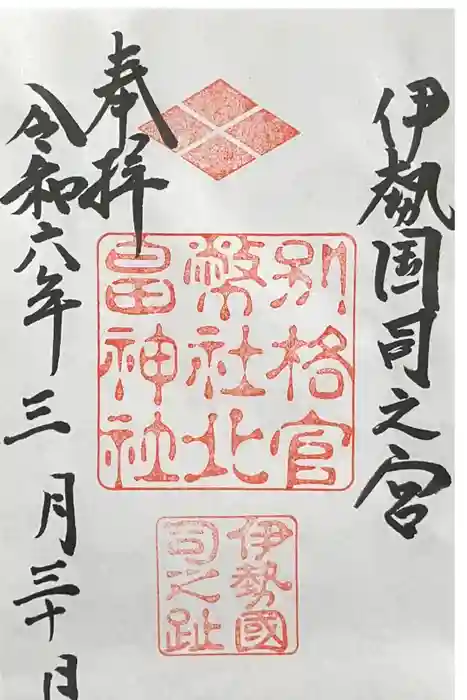 伊勢国司之宮
奉拝
別格官
幣社北
畠神社
伊勢國
司之趾
令和六年三月三十日